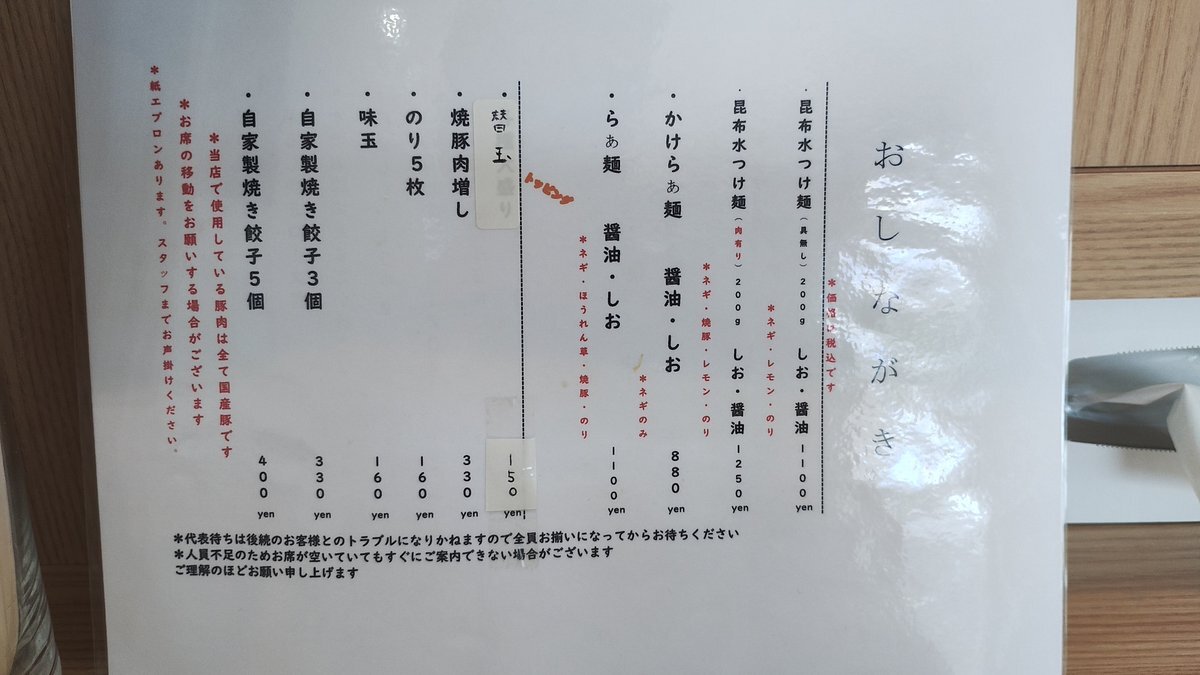 おしながき
*価格は税込です
・昆布水つけ麺(具無し)200g しお・醤油 1100yen
*ネギ・レモン・のり
・昆布水つけ麺(肉有り)200g しお・醤油 1250yen
*ネギ・焼豚・レモン・のり
・かけらぁ麺 醤油・しお 880yen
*ネギのみ
・らぁ麺 醤油・しお 1100yen
*ネギ・ほうれん草・焼豚・のり
トッピング
・替玉 150yen
・焼豚肉増し 330yen
・のり5枚 160yen
・味玉 160yen
・自家製焼き餃子3個 330yen
・自家製焼き餃子5個 400yen
*当店で使用している豚肉は全て国産豚です
*お席の移動をお願いする場合がございます
*紙エプロンあります。スタッフまでお声掛けください。
*代表待ちは後続のお客様とのトラブルになりかねますので全員お揃いになってからお待ちください
*人員不足のためお席が空いていてもすぐにご案内できない場合がございます
ご理解のほどお願い申し上げます